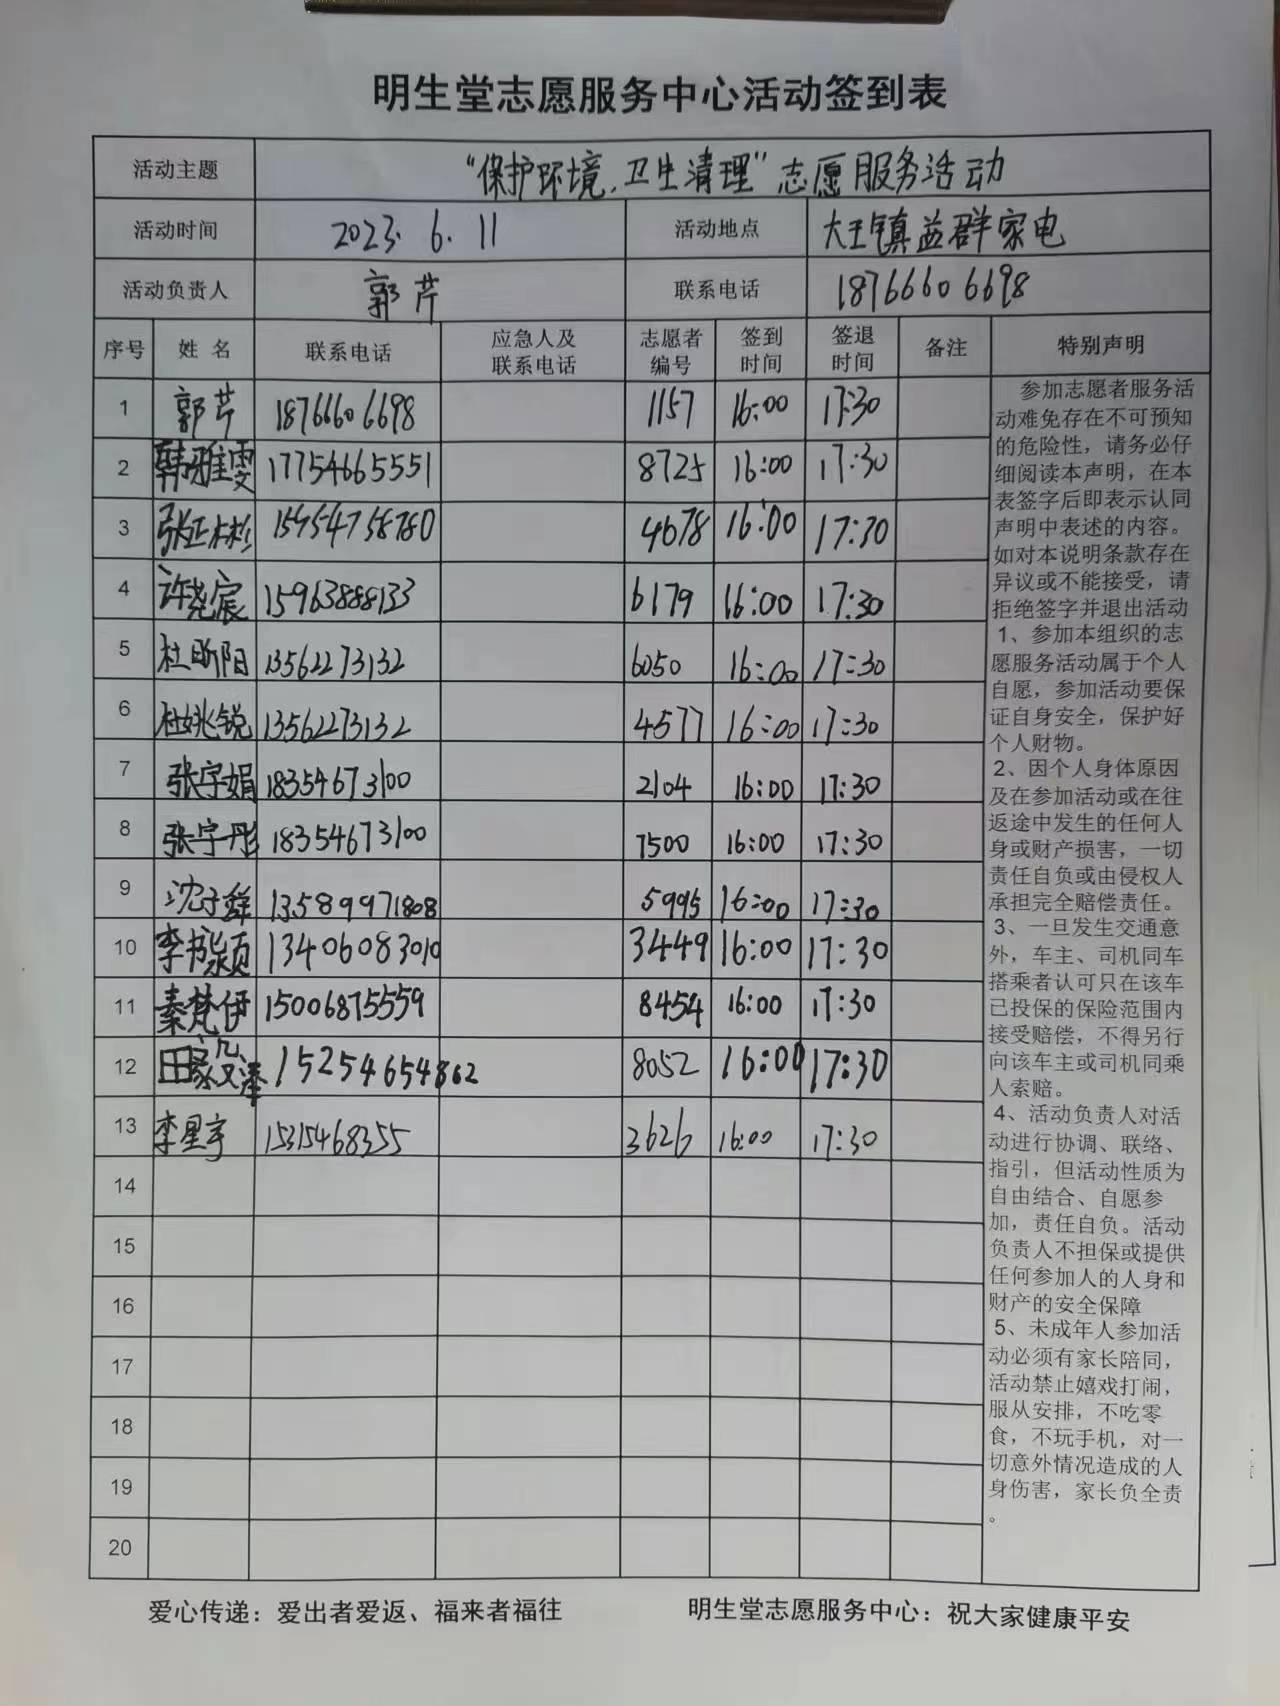 明生堂志愿服务中心活动签到表
活动主题 “保护环境.卫生清理”志愿服务活动
活动时间 2023.6.11 活动地点 大王镇益群家电
活动负责人 郭芹 联系电话 18766606698
序号 姓名 联系电话 应急人及联系电话 志愿者编号 签到时间 签退时间 备注 特别声明
1 郭芹 18766606698 1157 16:00 17:30
2 韩雅雯 17754665551 8725 16:00 17:30
3 张正彬 15954758780 4678 16:00 17:30
4 许尧宸 15963888133 6179 16:00 17:30
5 杜昕阳 13562273132 6050 16:00 17:30
6 杜姚锐 13562273132 4577 16:00 17:30
7 张字娟 18354673100 2104 16:00 17:30
8 张宇彤 18354673100 7500 16:00 17:30
9 沈子群 13589971808 5995 16:00 17:30
10 李书颍 13406083010 3449 16:00 17:30
11 秦梵伊 15006875559 8454 16:00 17:30
12 田家 15254654862 8052 16:00 17:30
13 李星宇 15315468355 3626 16:00 17:30
14
15
16
17
18
19
20
参加志愿者服务活
动难免存在不可预知
的危险性，请务必仔
细阅读本声明，在本
表签字后即表示认同
声明中表述的内容。
如对本说明条款存在
异议或不能接受，请
拒绝签字并退出活动
1、参加本组织的志
愿服务活动属于个人
自愿，参加活动要保
证自身安全，保护好
个人财物。
2、因个人身体原因
及在参加活动或在往
返途中发生的任何人
身或财产损害，一切
责任自负或由侵权人
承担完全赔偿责任。
3、一旦发生交通意
外，车主、司机同车
搭乘者认可只在该车
已投保的保险范围内
接受赔偿，不得另行
向该车主或司机同乘
人索赔。
4、活动负责人对活
动进行协调、联络、
指引，但活动性质为
自由结合、自愿参
加，责任自负。活动
负责人不担保或提供
任何参加人的人身和
财产的安全保障
5、未成年人参加活
动必须有家长陪同，
活动禁止嬉戏打闹，
服从安排，不吃零
食，不玩手机，对一
切意外情况造成的人
身伤害，家长负全责
。
爱心传递：爱出者爱返、福来者福往 明生堂志愿服务中心：祝大家健康平安